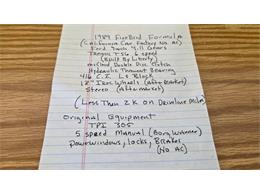 1989 FireBird Formula
(California Car Factory No AC)
Ford 9inch 4:11 Gears
Tremec T-56 6 speed
(Built By Liberty)
McCleod Double Disc Clutch
Hydraulic Throwout Bearing
416 C.I. LS Block
12" Disc Wheels (After Market)
Stereo (Aftermarket)
(Less Than 2K on Driveline Miles)
Original Equipment
TPI 305
5 speed Manual (Borg Warner)
Power windows, locks, Brakes
(No AC)